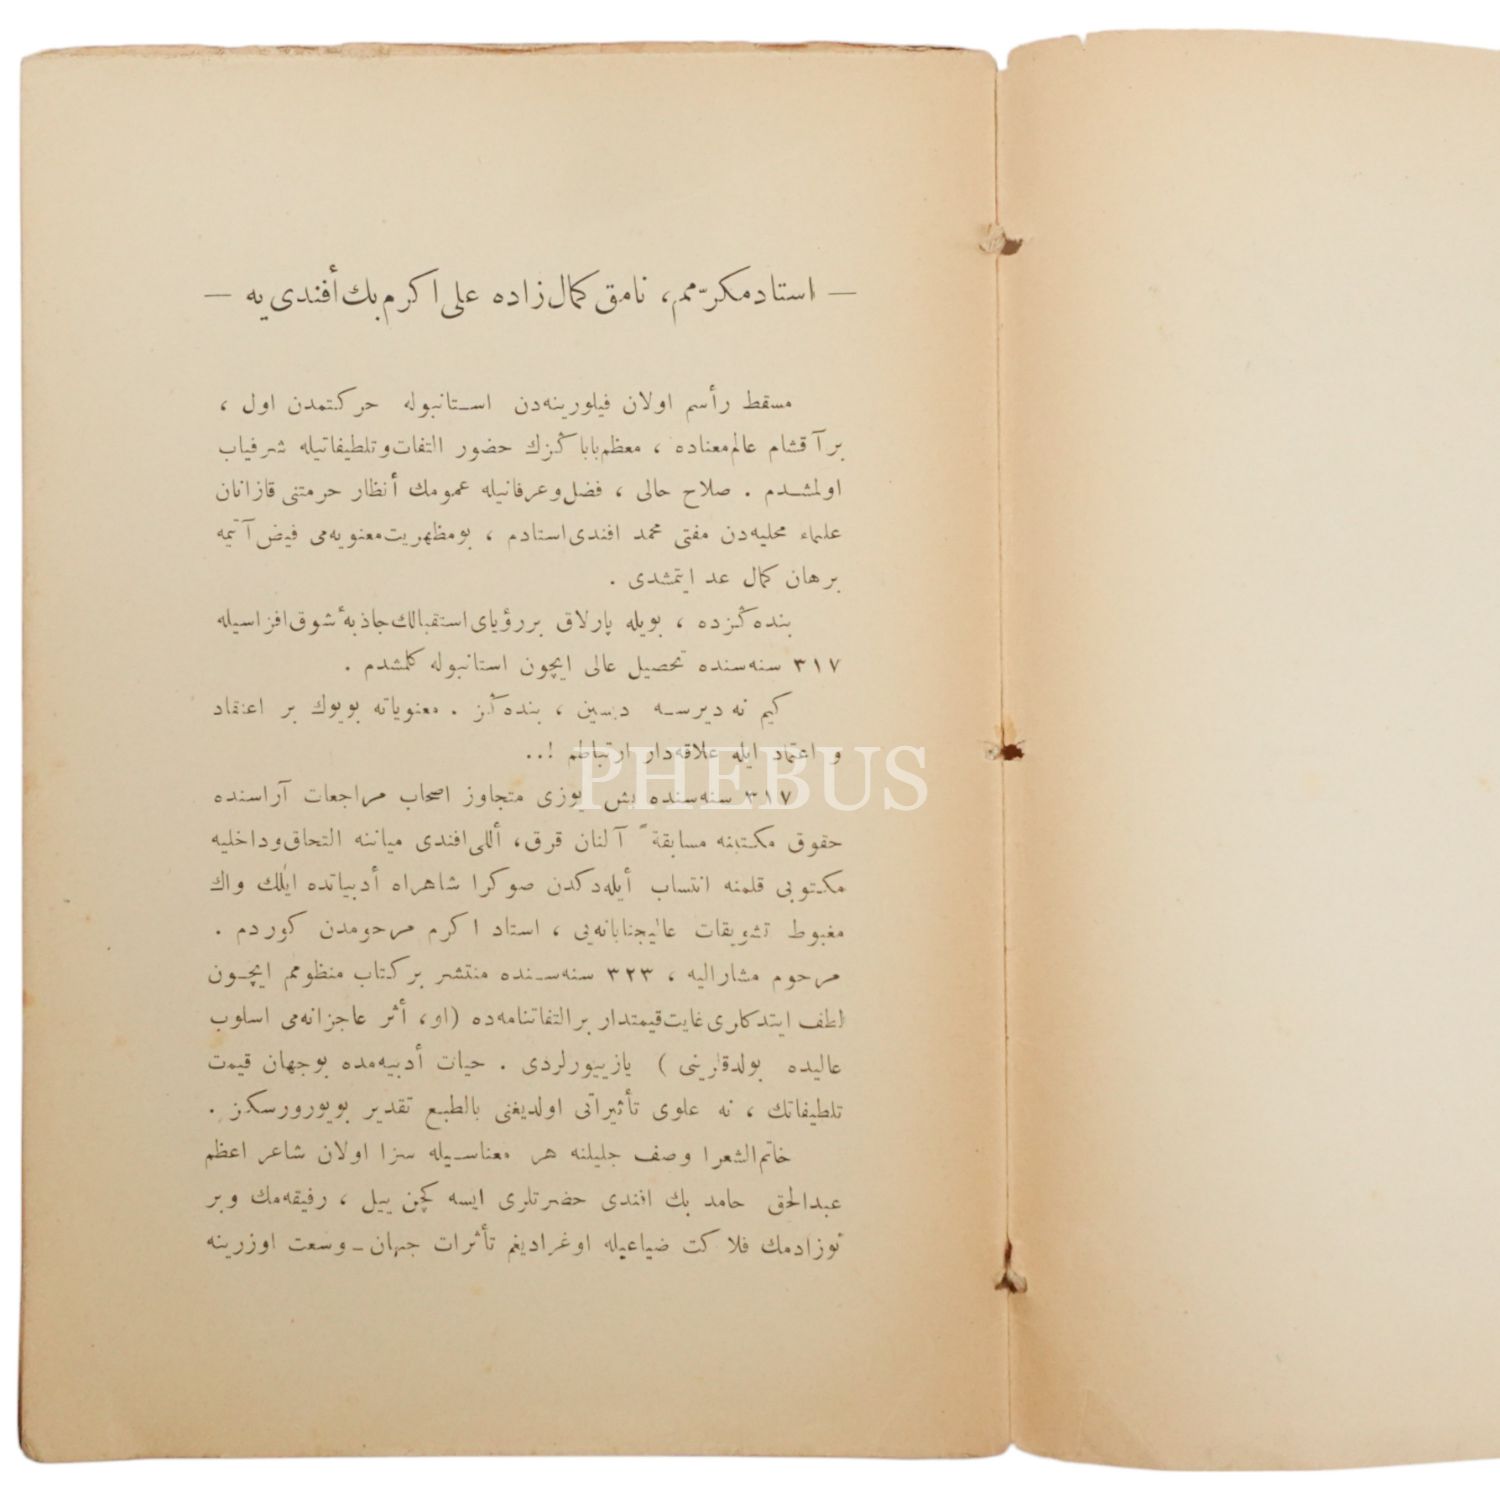 — استاد مكرّمم، نامق كمال زاده على اكرم بك أفندى يه —
مسقط رأسم اولان فيلورينه‌دن استانبوله حركتمدن اول ،
برآقشام عالم معناده ، معظم باباڭزك حضور التفات و تلطيفاتيله شرفياب
اولمشدم . صلاح حالى ، فضل و عرفانيله عمومك أنظار حرمتنى قازانان
علماء محليه‌دن مفتى محمد افندى استادم ، بو مظهريت معنويه‌مى فيض آتيمه
برهان كمال عد ايتمشدى .
بنده‌ڭزده ، بويله پارلاق بررؤياى استقبالك جاذبهٔ شوق افزاسيله
٣١٧ سنه سنده تحصيل عالى ايچون استانبوله كلمشدم .
كيم نه ديرسه ديسين ، بنده‌ڭز . معنوياته بويوك بر اعتقاد
و اعتماد ايله علاقه‌دار ارتباطم !..
٣١٧ سنه سنده بش يوزى متجاوز اصحاب مراجعات آراسنده
حقوق مكتبنه مسابقةً آلنان قرق، أللى افندى مياننه التحاق و داخليه
مكتوبى قلمنه انتساب أيله‌دكدن صوكرا شاهراه أدبياتده ايللك واك
مغبوط تشويقات عاليجنابانه‌يى ، استاد اكرم مرحومدن كوردم .
مرحوم مشاراليه ، ٣٢٣ سنه سنده منتشر بركتاب منظومم ايچون
لطف ايتدكارى غايت قيمتدار برالتفاتنامه‌ده (او، أثر عاجزانه‌مى اسلوب
عاليده بولدقلرينى ) يازييورلردى . حيات أدبيه‌مده بوجهان قيمت
تلطيفاتك ، نه علوى تأثيراتى اولديغنى بالطبع تقدير بويورورسكز .
خاتم الشعرا وصف جليلنه هر معناسيله سزا اولان شاعر اعظم
عبدالحق حامد بك افندى حضرتلرى ايسه كچن ييل ، رفيقه‌مك و بر
نوزادمك فلاكت ضياعيله اوغراديغم تأثرات جهان ـ وسعت اوزرينه
PHEBUS